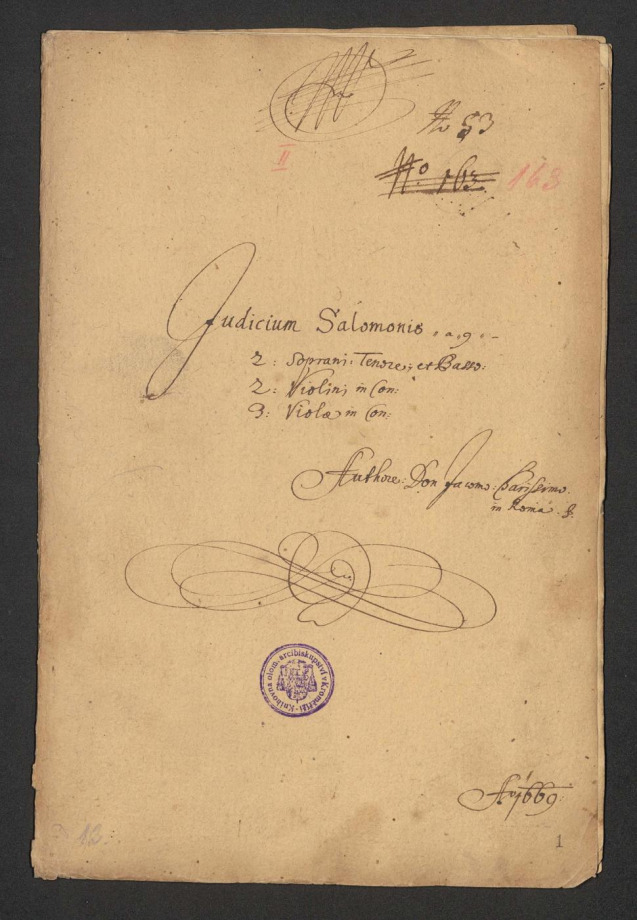 No 53
II
No 163 163
Judicium Salomonis . a . 9 . -
2: Soprani. Tenore, et Basso:
2: Violini in Con:
3: Violæ in Con:
Authore: Don Jacomo: Carissimo.
in Roma.
Knihovna olom. arcibiskupství v Kroměříži
Ao 1669.
13.
1